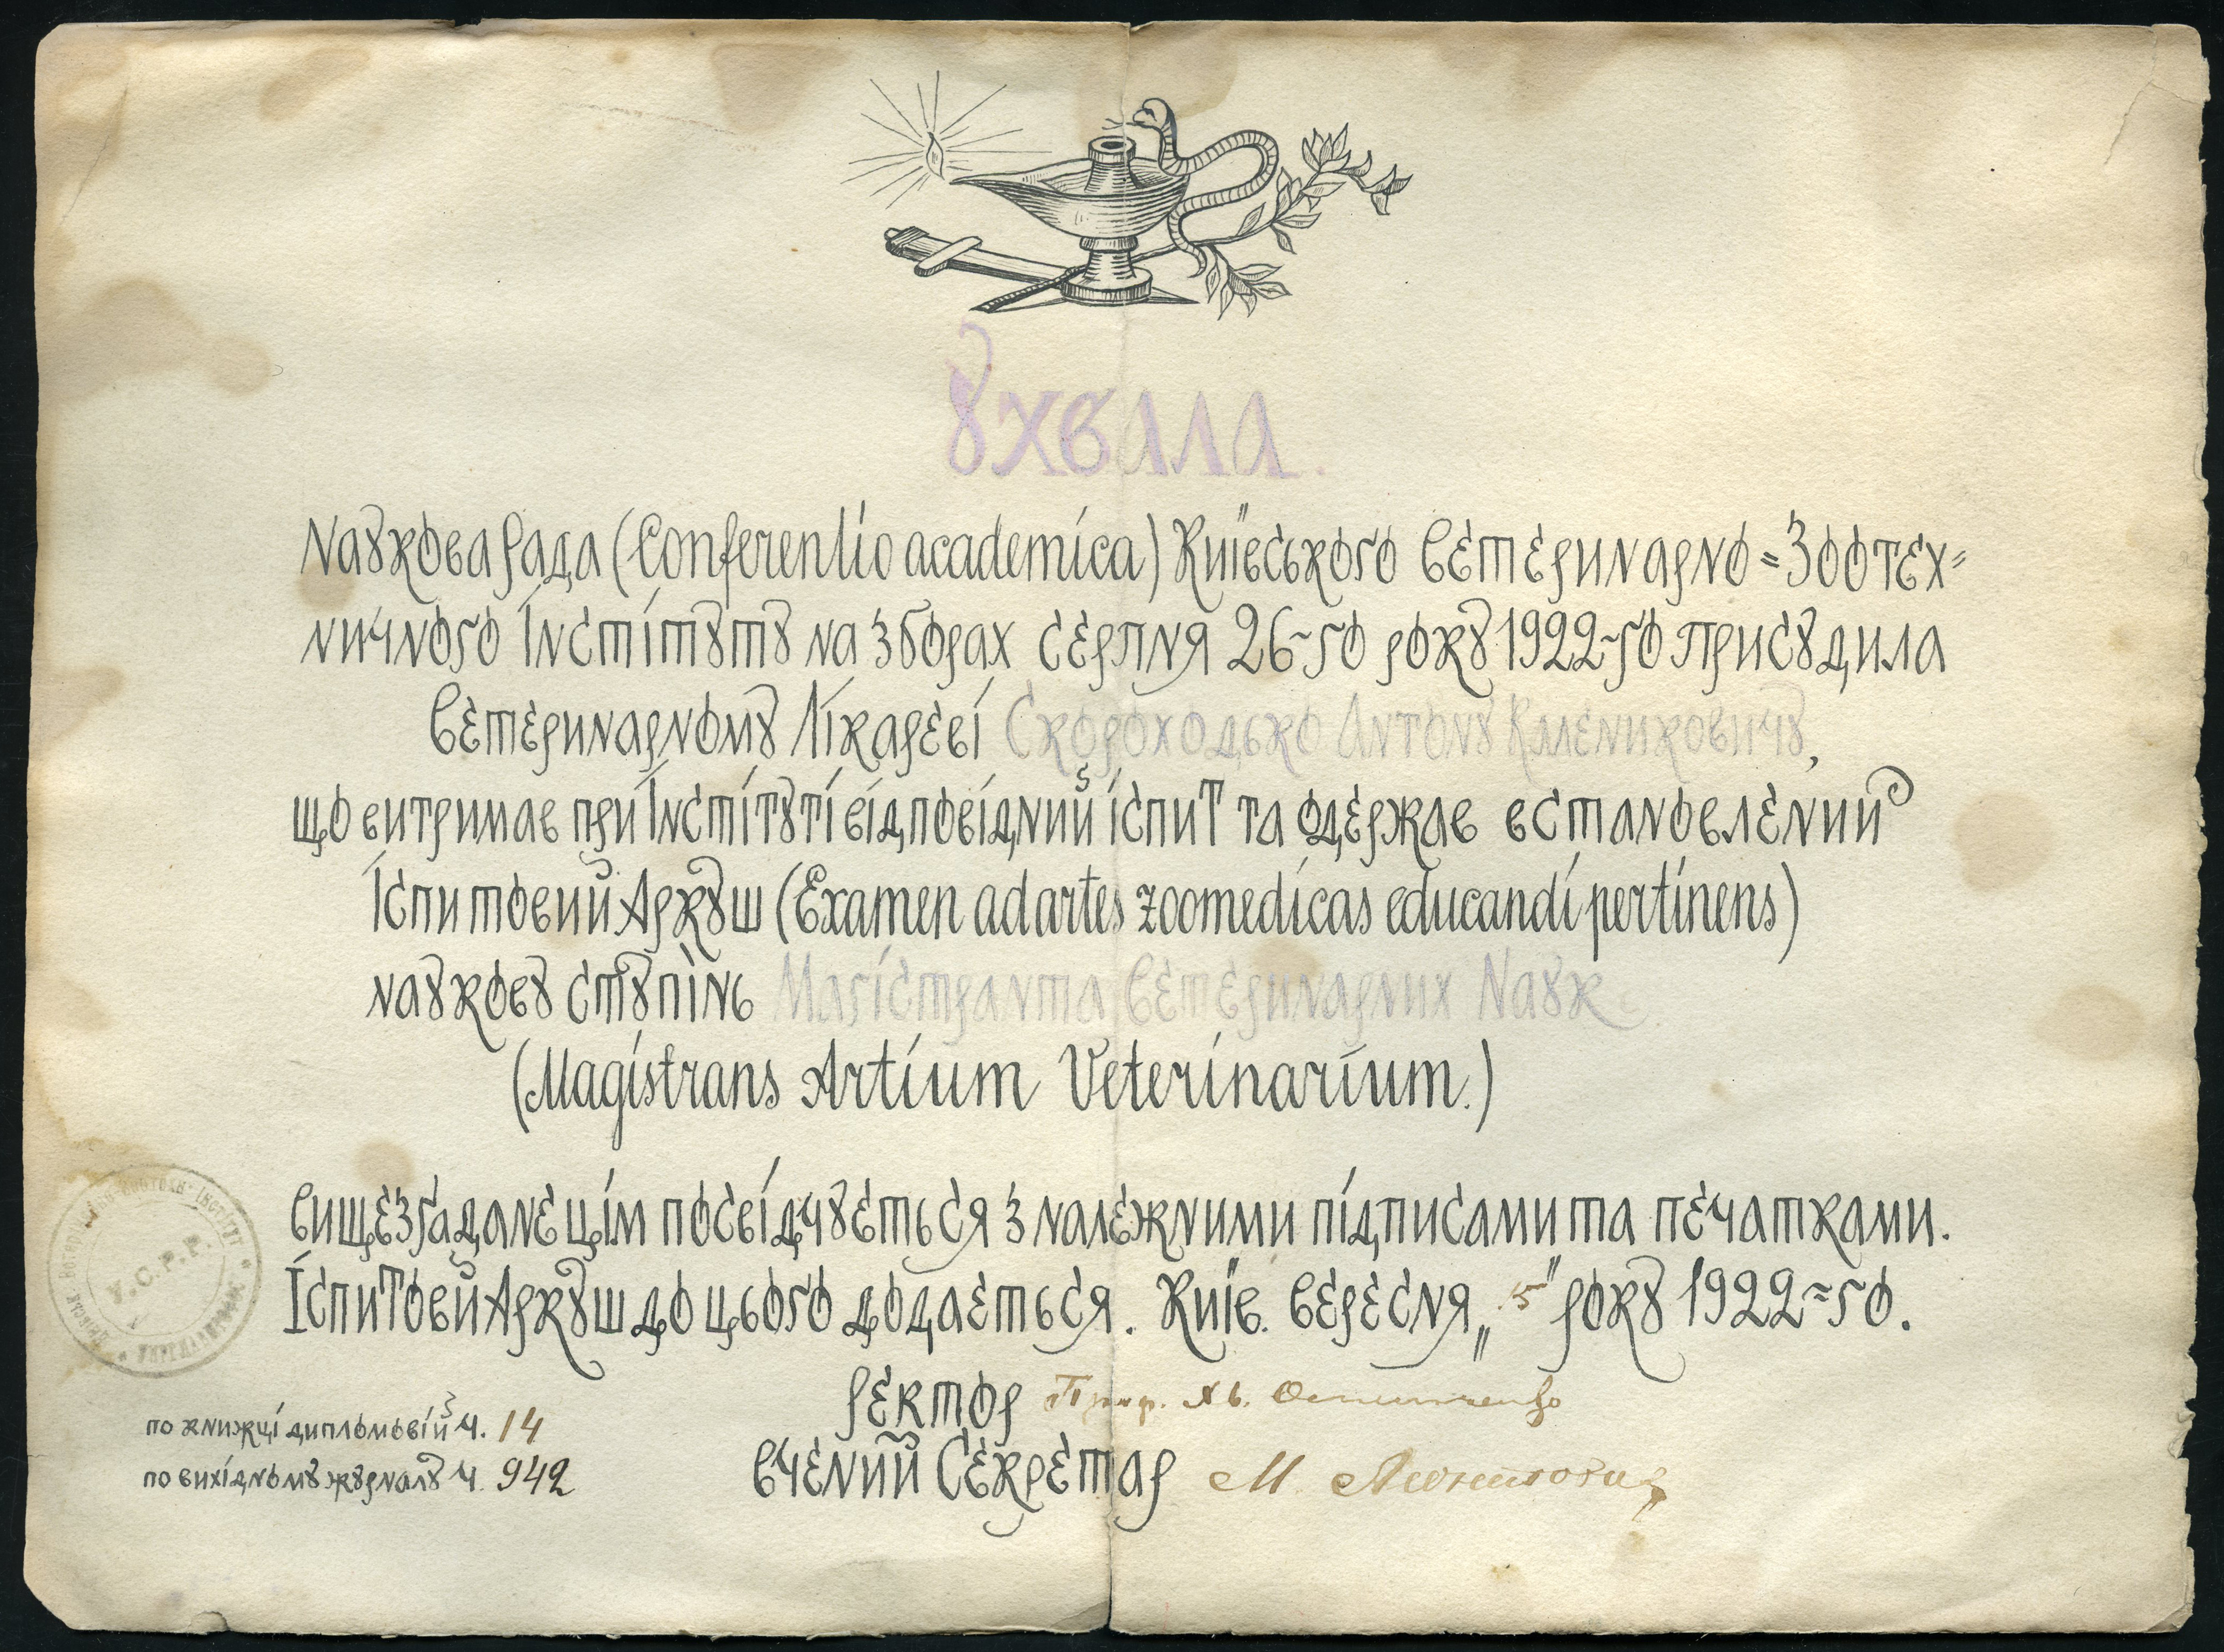 Ухвала.
Наукова Рада (Conferentio academica) Київського Ветеринарно=Зоотех=
ничного Інституту на зборах серпня 26-го року 1922-го присудила
Ветеринарному Лікареві Скороходько Антону Калениковичу,
що витримав при Інституті відповідний іспит та одержав встановлений
Іспитовий Аркуш (Examen ad artes zoomedicas educandi pertinens)
наукову ступінь Магістранта Ветеринарних Наук.
(Magistrans Artium Veterinarium.)
Вищезгадане цім посвідчується з належними підписами та печатками.
Іспитовй Аркуш до цього додається. Київ. Вересня „15" року 1922-го.
Ректор Проф.
Вчений Секретар М.
по книжці дипломовій Ч. 14
по вихідному журналу Ч. 942
У.С.Р.Р.